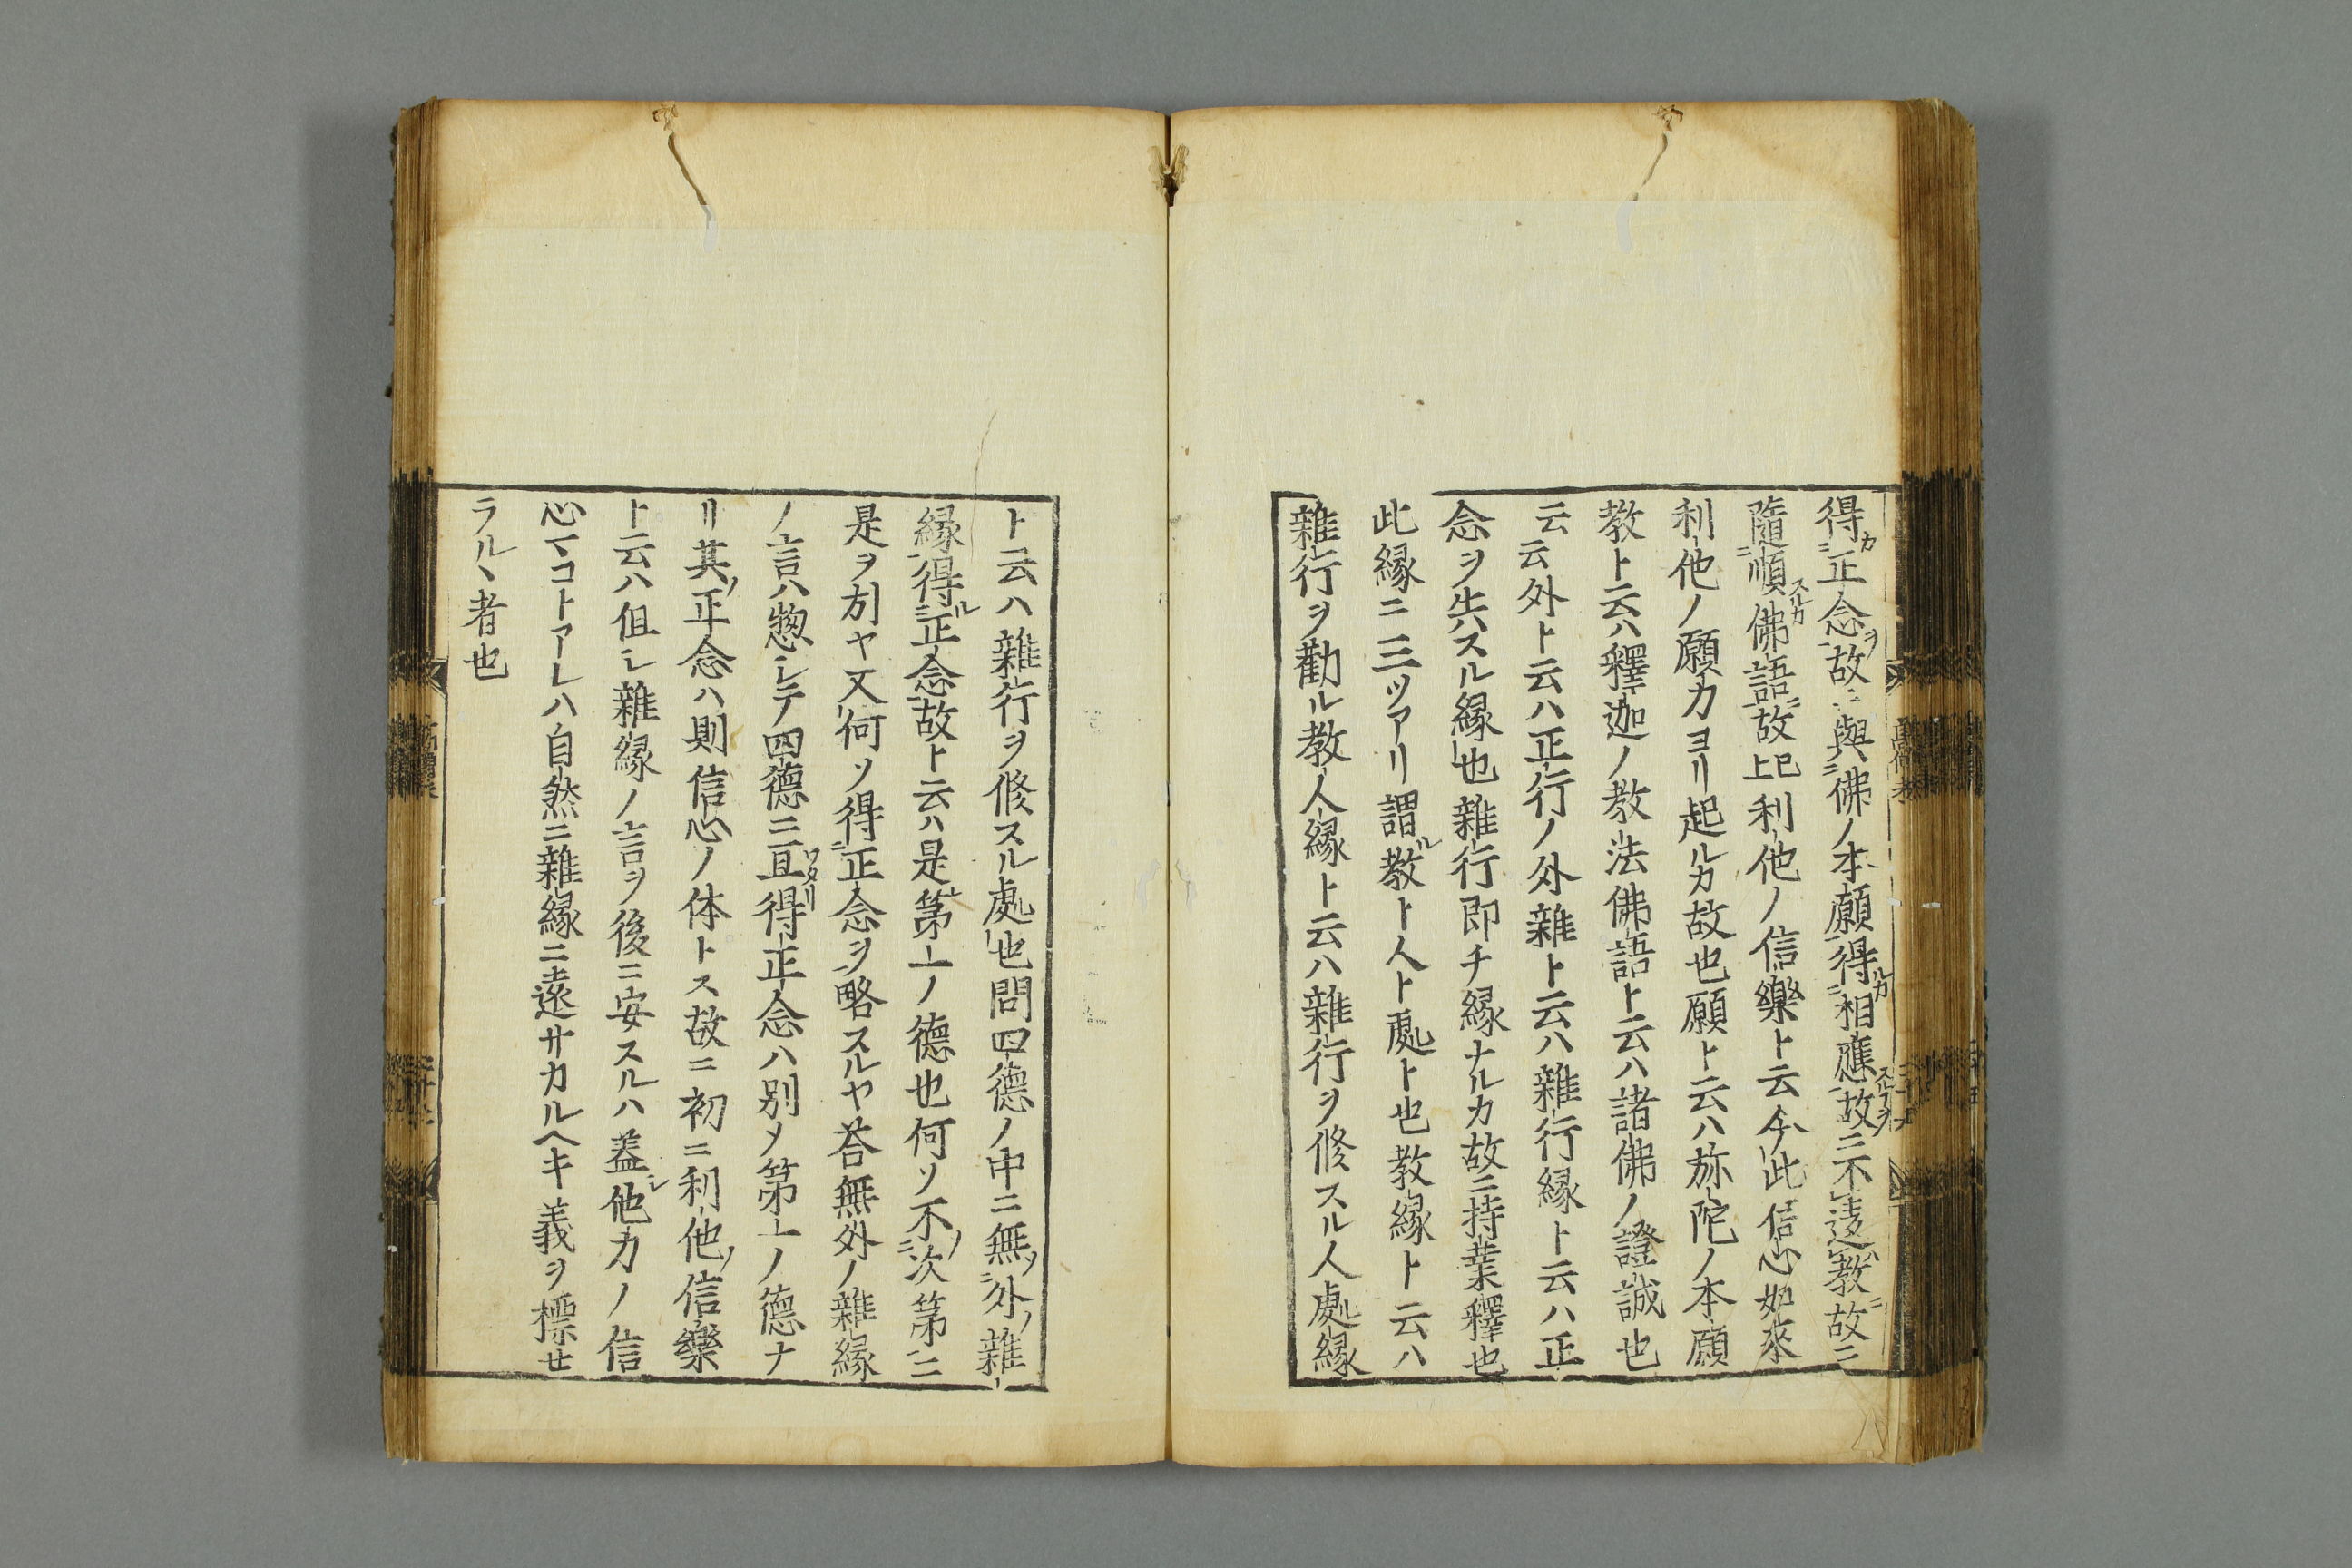 得カ二正念ヲ一故ニ與二佛ノ本願一得ルカ二相應スルコヲ一故ニ三不レ違レ教ニ故ニ
隨二順スルカ佛語ニ一故已上利他ノ信樂ト云ハ今此信心如來
利他ノ願力ヨリ起ルカ故也願ト云ハ弥陀ノ本願
教ト云ハ釋迦ノ教法佛語ト云ハ諸佛ノ證誠也
云云外ト云ハ正行ノ外雜ト云ハ雜行縁ト云ハ正
念ヲ失スル縁也雜行即チ縁ナルカ故ニ持業釋也
此縁ニ三ツアリ謂ル教ト人ト處ト也教縁ト云ハ
雜行ヲ勸ル教人縁ト云ハ雜行ヲ修スル人處縁
ト云ハ雜行ヲ修スル處也問四德ノ中ニ無ノ二外ノ雜
縁一得ル二正念一故ト云ハ是第一ノ德也何ソ不ノ二次第一ニ
是ヲ列ヤ又何ソ得二正念ヲ一略スルヤ荅無外ノ雜縁
ノ言ハ惣シテ四德ニ亘ワタリ得正念ハ別メ第一ノ德ナ
リ其ノ正念ハ則信心ノ体トス故ニ初ニ利他ノ信樂
ト云ハ但シ雜縁ノ言ヲ後ニ安スルハ蓋シ他力ノ信
心マコトアレハ自然ニ雜縁ニ遠サカルヘキ義ヲ標セ
ラルヽ者也